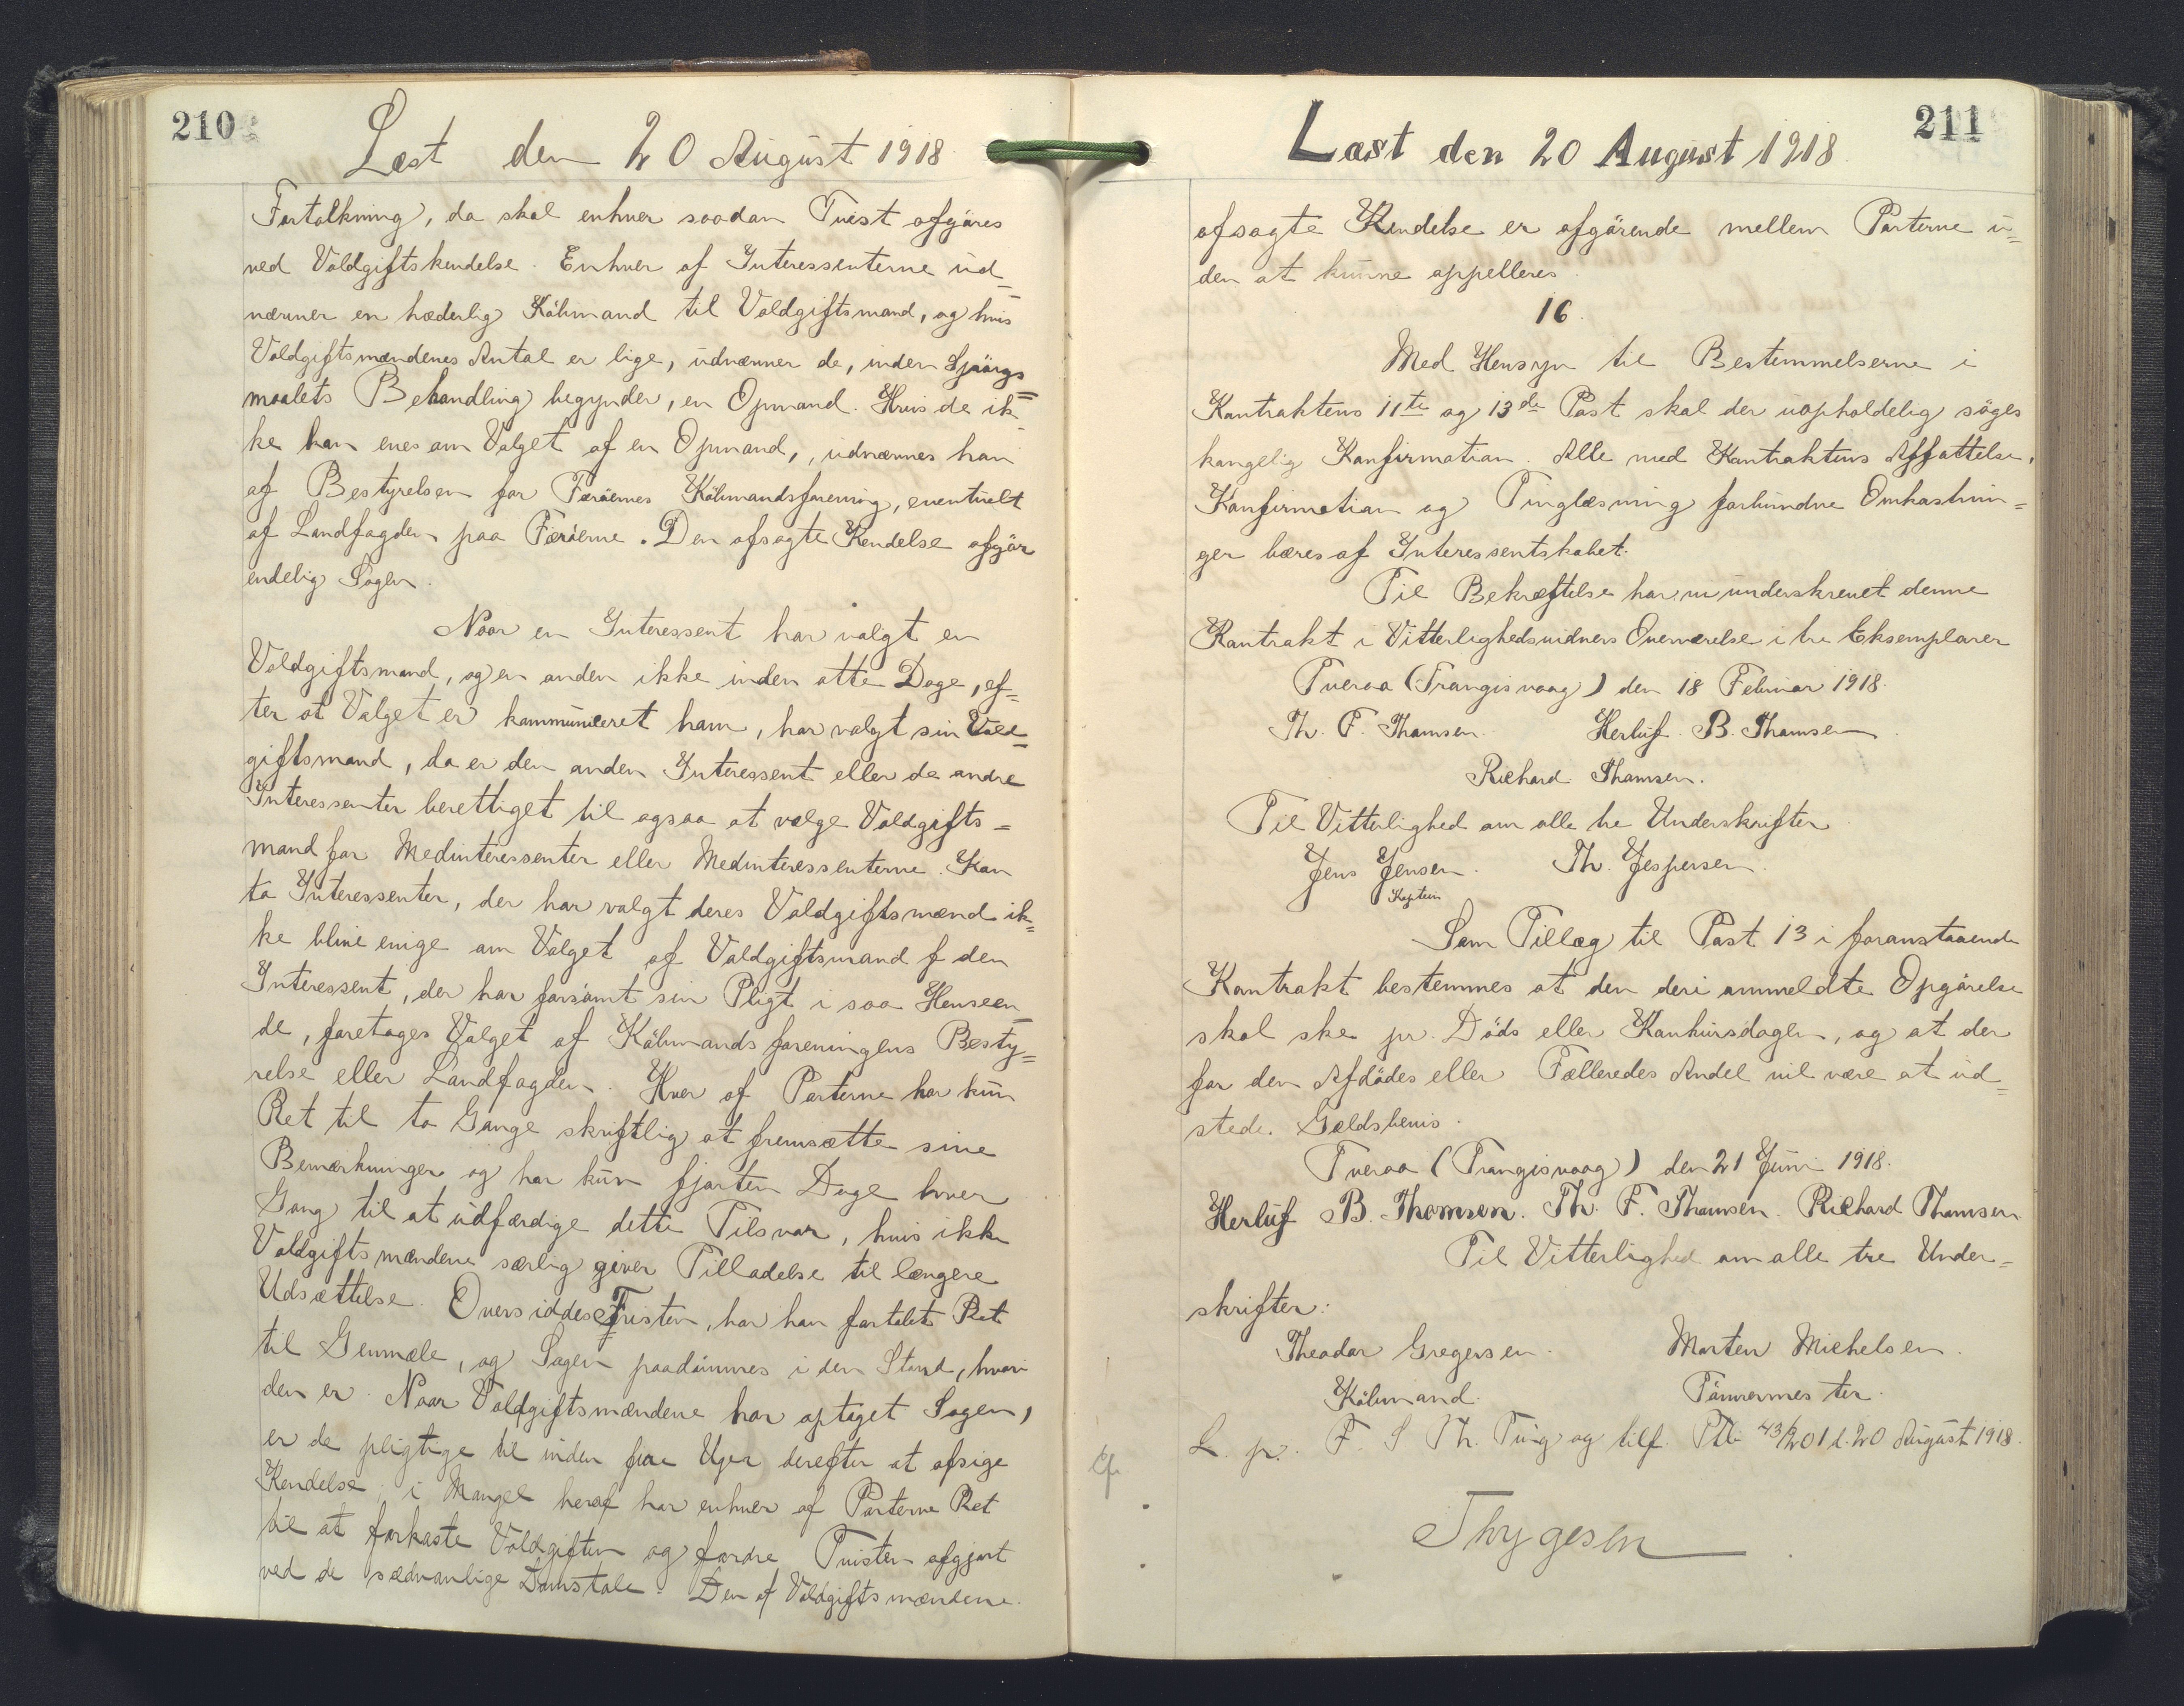 210
Læst den 20 August 1918
Fortolkning, da skal enhver saadan Tvist afgöres
ved Voldgiftskendelse. Enhver af Interessenterne ud-
nævner en hæderlig Köbmand til Voldgiftsmand, og hvis
Voldgiftsmændenes Antal er lige, udnævner de, inden Spörgs=
maalets Behandling begynder, en Opmand. Hvis de ik-
ke kan enes om Valget af en Opmand, udnævnes han
af Bestyrelsen for Færöernes Köbmandsforening, eventuelt
af Landfogden paa Færöerne. Den afsagte Kendelse afgör
endelig Sagen.
Naar en Interessent har valgt en
Voldgiftsmand, og en anden ikke inden otte Dage, ef=
ter at Valget er kommuniceret ham, har valgt sin Vold=
giftsmand, da er den anden Interessent eller de andre
Interessenter berettiget til ogsaa at vælge Voldgifts=
mand for Medinteressenter eller Medinteressenterne. Kan
to Interessenter, der har valgt deres Voldgiftsmænd ik=
ke blive enige om Valget af Voldgiftsmand f den
Interessent, der har forsömt sin Pligt i saa Henseen=
de, foretages Valget af Köbmandsforeningens Besty=
relse eller Landfogden. Hver af Parterne har kun
Ret til to Gange skriftlig at fremsætte sine
Bemærkninger og har kun fjorten Dage hver
Gang til at udfærdige dette Tilsvar, hvis ikke
Voldgiftsmændene særlig giver Tilladelse til længere
Udsættelse. Oversiddes Fristen, har han fortabt Ret
til Genmæle, og Sagen paadömmes i den Stand, hvori
den er. Naar Voldgiftsmændene har optaget Sagen,
er de pligtige til inden fire Uger derefter at afsige
Kendelse; i Mangel heraf har enhver af Parterne Ret
til at forkaste Voldgiften og fordre Tvisten afgjort
ved de sædvanlige Domstole. Den af Voldgiftsmændene
211
Læst den 20 August 1918
afsagte Kendelse er afgörende mellem Parterne u=
den at kunne appelleres.
16.
Med Hensyn til Bestemmelserne i
Kontraktens 11te og 13de Post skal der uopholdelig söges
kongelig Konfirmation. Alle med Kontraktens Affattelse,
Konfirmation og Tinglæsning forbundne Omkostnin=
ger bæres af Interessentskabet.
Til Bekræftelse har vi underskrevet denne
Kontrakt i Vitterlighedsvidners Overværelse i tre Eksemplarer
Tveraa (Trangisvaag) den 18 Februar 1918.
Th. F. Thomsen. Herluf. B. Thomsen.
Richard Thomsen.
Til Vitterlighed om alle tre Underskrifter
Jens Jensen. Th. Jespersen.
Kaptein
Som Tillæg til Post 13 i foranstaaende
Kontrakt bestemmes at den deri ommeldte Opgörelse
skal ske pr. Döds eller Konkursdagen, og at der
for den Afdödes eller Falleredes Andel vil være at ud=
stede Gældsbevis.
Tveraa (Trangisvaag) den 21 Juni 1918.
Herluf B. Thomsen. Th. F. Thomsen. Richard Thomsen
Til Vitterlighed om alle tre Under=
skrifter:
Theodor Gregersen. Morten Michelsen.
Köbmand. Tömmermester.
L. p. F. S Th. Ting og tilf. Ptb 43/201 d. 20 August 1918.
Thygesen